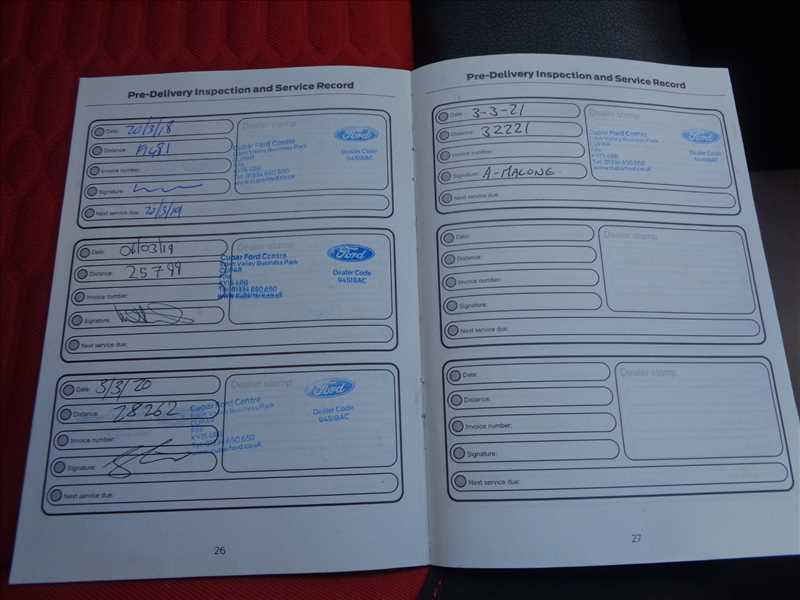 Pre-Delivery Inspection and Service Record
Date: 20/3/18
Distance: 19481
Invoice number:
Signature:
Next service due: 20/3/19
Dealer stamp
Cupar Ford Centre
Eden Valley Business Park
CUPAR
Fife
KY15 4RB
Tel: 01334 650 650
www.cuparford.co.uk
Ford
Dealer Code
94518AC
Date: 04/03/19
Distance: 25799
Invoice number:
Signature:
Next service due:
Dealer stamp
Cupar Ford Centre
Eden Valley Business Park
CUPAR
Fife
KY15 4RB
Tel: 01334 650 650
www.cuparford.co.uk
Ford
Dealer Code
94518AC
Date: 3/3/20
Distance: 28262
Invoice number:
Signature:
Next service due:
Dealer stamp
Cupar Ford Centre
Eden Valley Business Park
CUPAR
Fife
KY15 4RB
Tel: 01334 650 650
www.cuparford.co.uk
Ford
Dealer Code
94518AC
26
Pre-Delivery Inspection and Service Record
Date: 3-3-21
Distance: 32221
Invoice number:
Signature: A-MALONE.
Next service due:
Dealer stamp
Cupar Ford Centre
Eden Valley Business Park
CUPAR
Fife
KY15 4RB
Tel: 01334 650 650
www.cuparford.co.uk
Ford
Dealer Code
94518AC
Date:
Distance:
Invoice number:
Signature:
Next service due:
Dealer stamp
Date:
Distance:
Invoice number:
Signature:
Next service due:
Dealer stamp
27